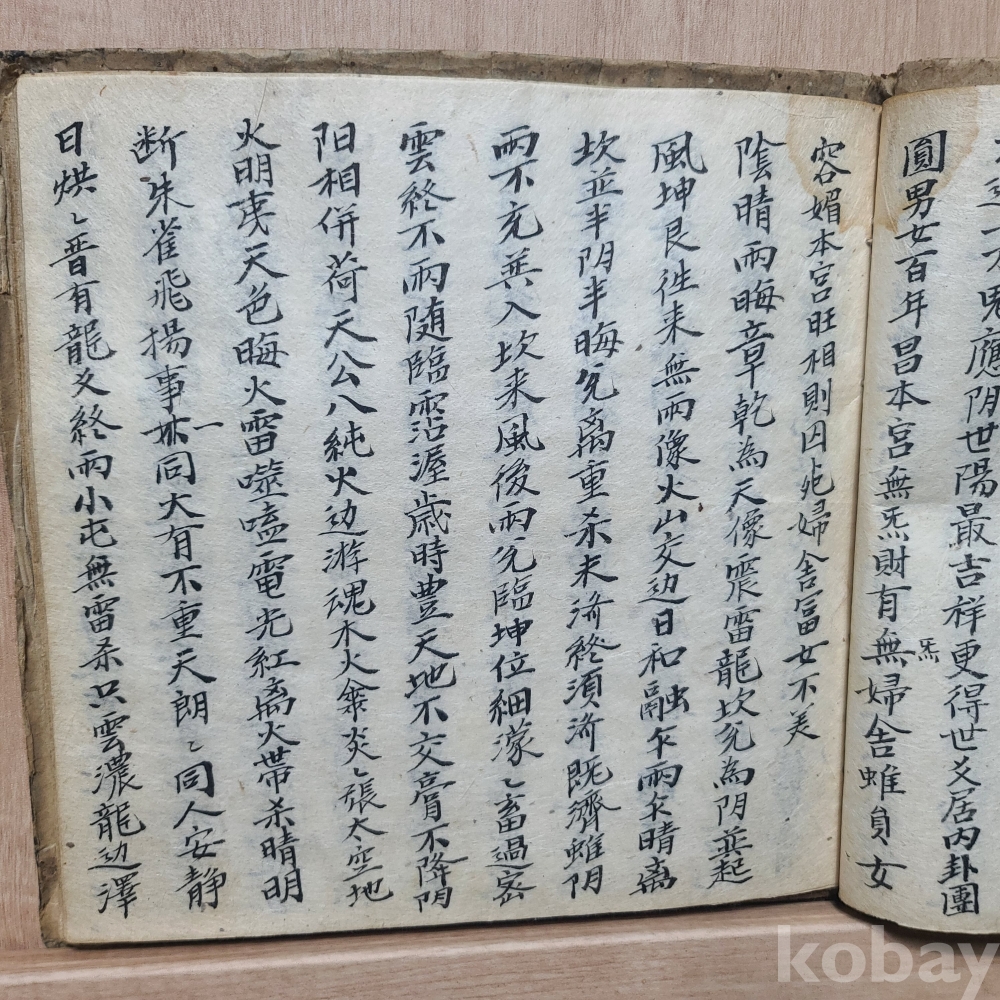 應阴世陽最吉祥更得世爻居内卦團
圓男女百年昌本宮無炁財有無婦舍雖員女
炁
容媚本宮旺相則囚死婦舍富女不美
陰晴雨晦章乾為天像震雷龍坎兊為阴並起
風坤艮徃来無雨像火山交边日和融乍雨乍晴离
坎並半阴半晦兊离重杀未济終須济既濟雖阴
雨不充巽入坎来風後雨兊臨坤位細濛〻畜過密
雲終不雨随臨霑渥歲時豊天地不交膏不降阴
阳相併荷天公八純火边游魂木火傘炎〻張太空地
火明夷天色晦火雷噬嗑電光紅离火帶杀晴明
断朱雀飛揚事一同大有不重天朗〻同人安静
日烘〻普有龍爻終雨小屯無雷杀只雲濃龍边澤
kobay